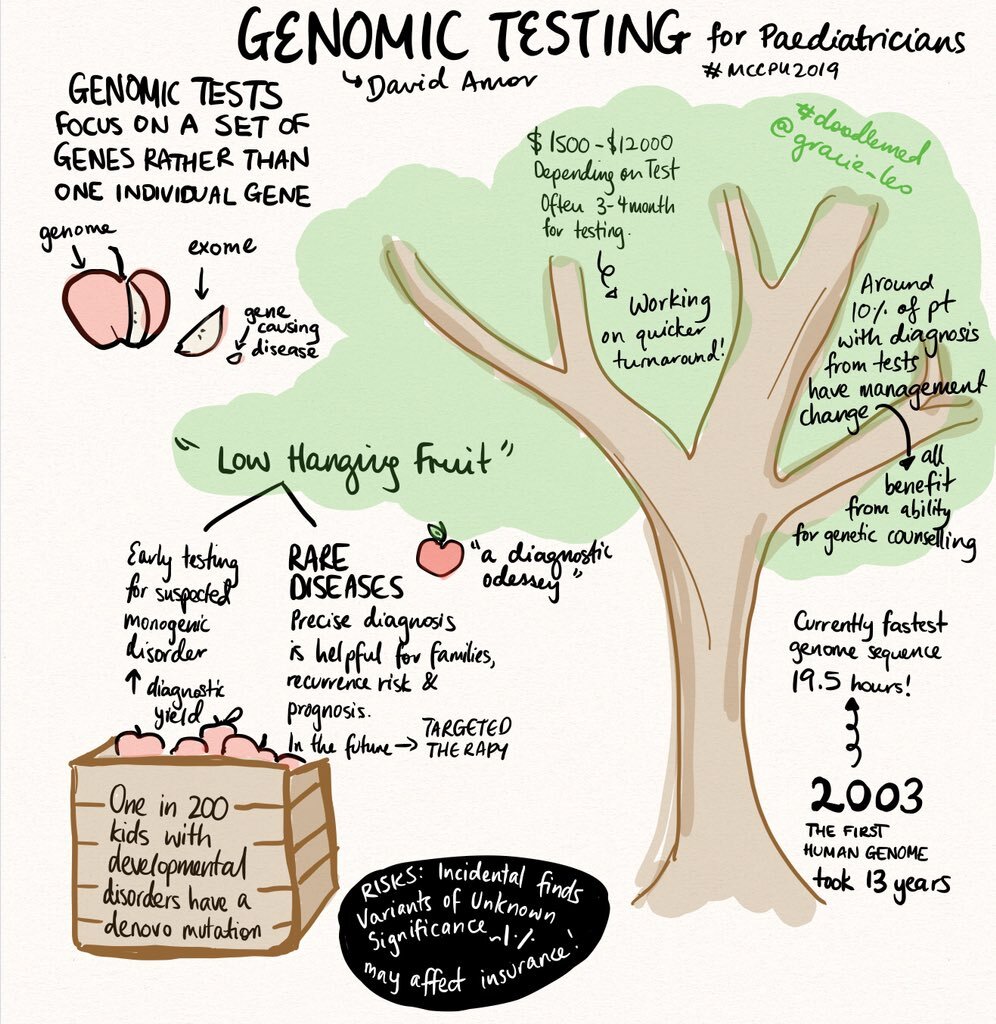 GENOMIC TESTING for Paediatricians
David Amor
#MCCPU2019
GENOMIC TESTS
FOCUS ON A SET OF
GENES RATHER THAN
ONE INDIVIDUAL GENE
genome
exome
gene
causing
disease
$1500-$12000
Depending on Test
Often 3-4month
for testing.
Working
on quicker
turnaround!
#doodlemed
@gracie_leo
Around
10% of pt
with diagnosis
from tests
have management
change
all
benefit
from ability
for genetic counselling
"Low Hanging Fruit"
Early testing
for suspected
monogenic
disorder
↑ diagnostic
yield
RARE
DISEASES
Precise diagnosis
is helpful for families,
recurrence risk &
prognosis.
In the future → TARGETED
THERAPY
"a diagnostic
odessey"
Currently fastest
genome sequence
19.5 hours!
2003
THE FIRST
HUMAN GENOME
took 13 years
One in 200
kids with
developmental
disorders have a
denovo mutation
RISKS: Incidental finds
Variants of Unknown
Significance ~1%
may affect insurance!